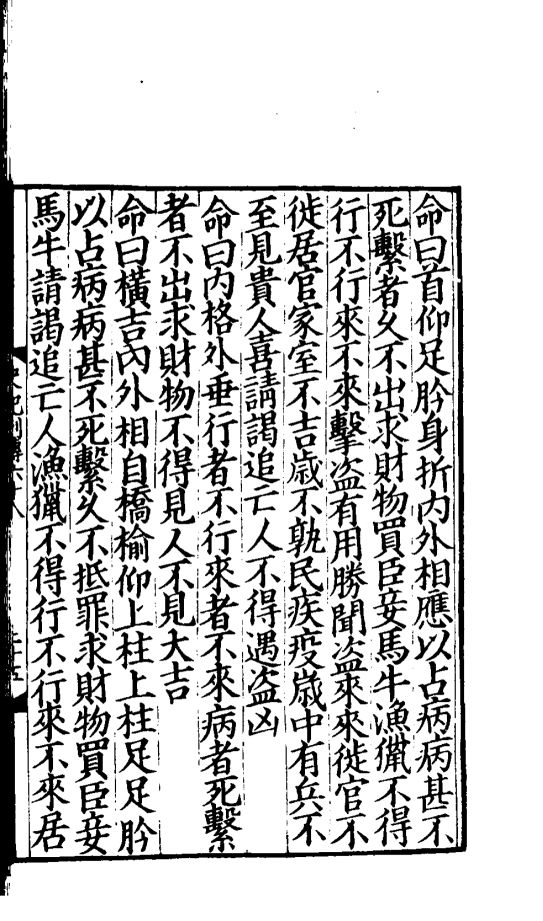 命曰首仰足肣身折内外相應以占病病甚不
死繫者久不出求財物買臣妾馬牛漁獵不得
行不行來不來擊盗有用勝聞盗來來徙官不
徙居官家室不吉歲不孰民疾疫歲中有兵不
至見貴人喜請謁追亡人不得遇盗凶
命曰内格外垂行者不行來者不來病者死繫
者不出求財物不得見人不見大吉
命曰橫吉内外相自橋榆仰上柱上柱足足肣
以占病病甚不死繫久不抵罪求財物買臣妾
馬牛請謁追亡人漁獵不得行不行來不來居
史記列傳六十八